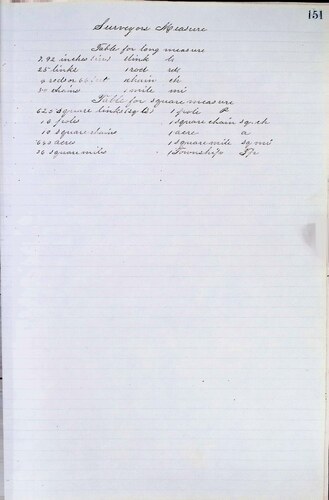 151
Surveyors Measure
Table for long measure
7.92 inches (ins) 1 link li
25 links 1 rod rd
4 rods or 66 feet 1 chain ch
80 chains 1 mile mi
Table for square measure
625 square links (sq li) 1 pole P
16 poles 1 square chain sq. ch
10 square chains 1 acre a
640 acres 1 square mile sq mi
36 square miles 1 Township Tp